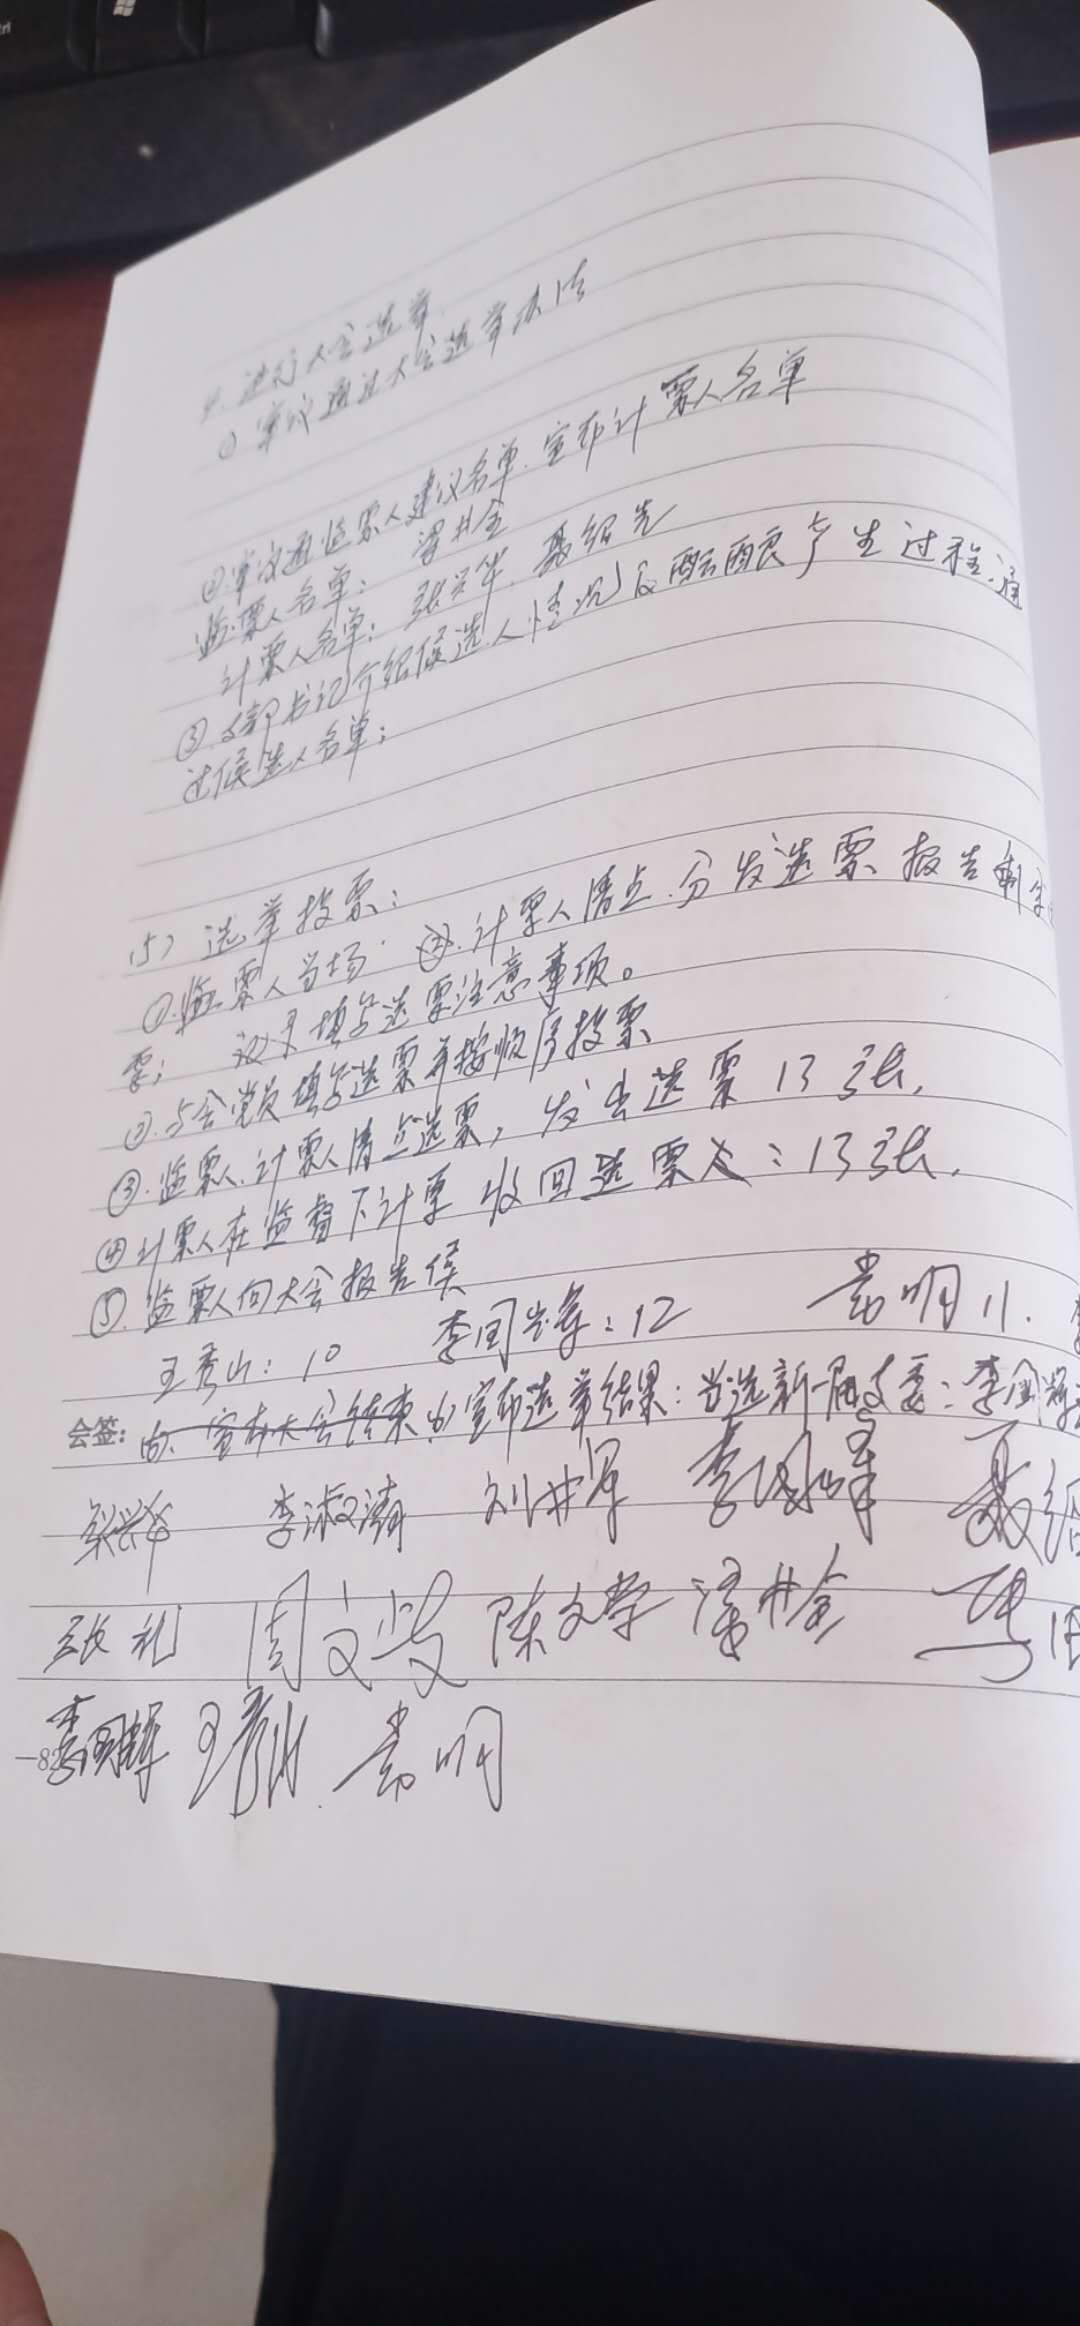 进行大会选举
① 审议通过大会选举办法
②审议通监票人建议名单.宣布计票人名单
监票人名单: 井全
计票人名单: 聂绍先
③.支部书记介绍候选人情况及酝酿产生过程.通
过候选人名单:
(5) 选举投票:
①.监票人当场. ②.计票人清点.分发选票 报告制
票; 填写选票注意事项。
②.与会党员填写选票并按顺序投票
③.监票人.计票人清点选票, 发出选票13张,
④计票人在监督下计票 收回选票:13张.
⑤.监票人向大会报告候
王秀山:10 李国 :12 袁明11.
会签: 宣布大会结束 宣布选举结果:当选新一届支委:李国辉
李淑清 刘井军 李国峰 聂绍
张礼 周文 陈文学 井全
李国辉 王秀山 袁明